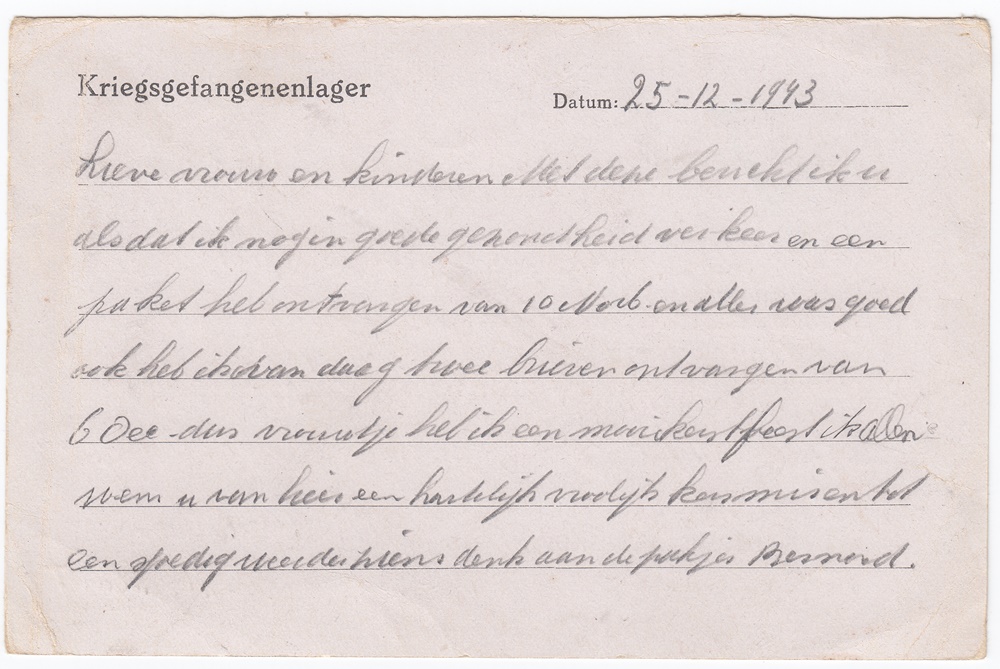 Kriegsgefangenenlager
Datum: 25-12-1943
Lieve vrouw en kinderen Met deze bericht ik u
alsdat ik nog in goede gezondheid verkeer en een
paket heb ontvangen van 10 Novb. en alles was goed
ook heb ik van daag twee brieven ontvangen van
6 Dec - dus vrouwtje heb ik een mooi kerstfeest ik
wens u van hier een hartelijk vroolijk kersmis en tot
een spoedig weederziens denk aan de pakjes Bernard.